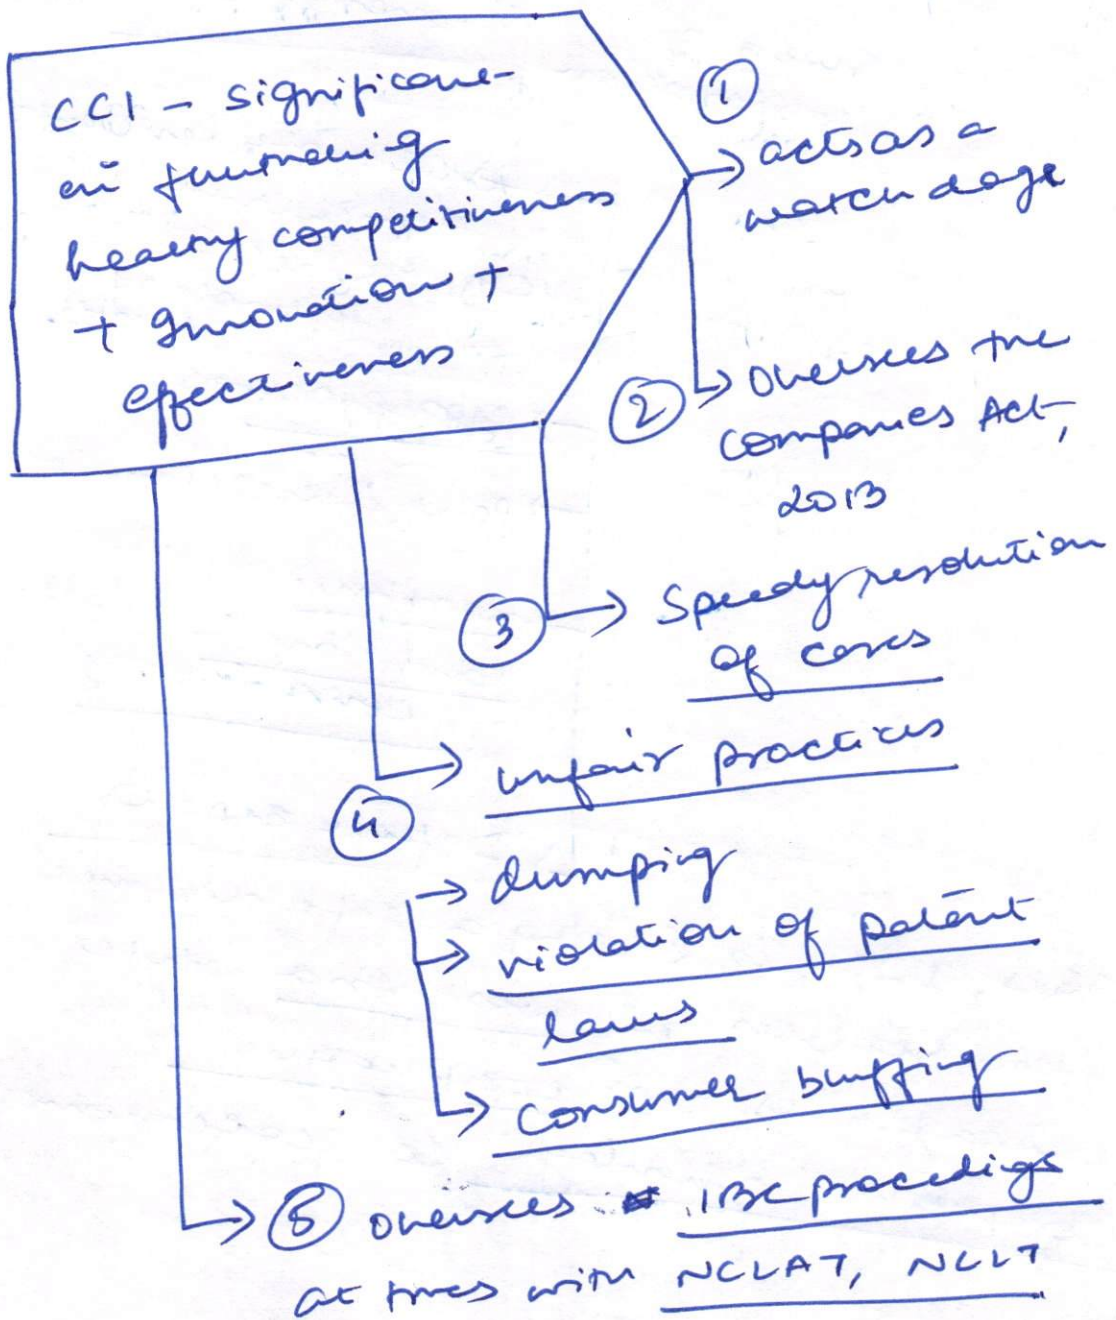 CCI - significance
in furthering
healthy competitiveness
+ Innovation +
effectiveness
① → acts as a
watch dog
② → Oversees the
Companies Act,
2013
③ → Speedy resolution
of cases
④ → unfair practices
→ dumping
→ violation of patent
laws
→ Consumer bluffing
→ ⑤ oversees IBC procedigs
at times with NCLAT, NCLT